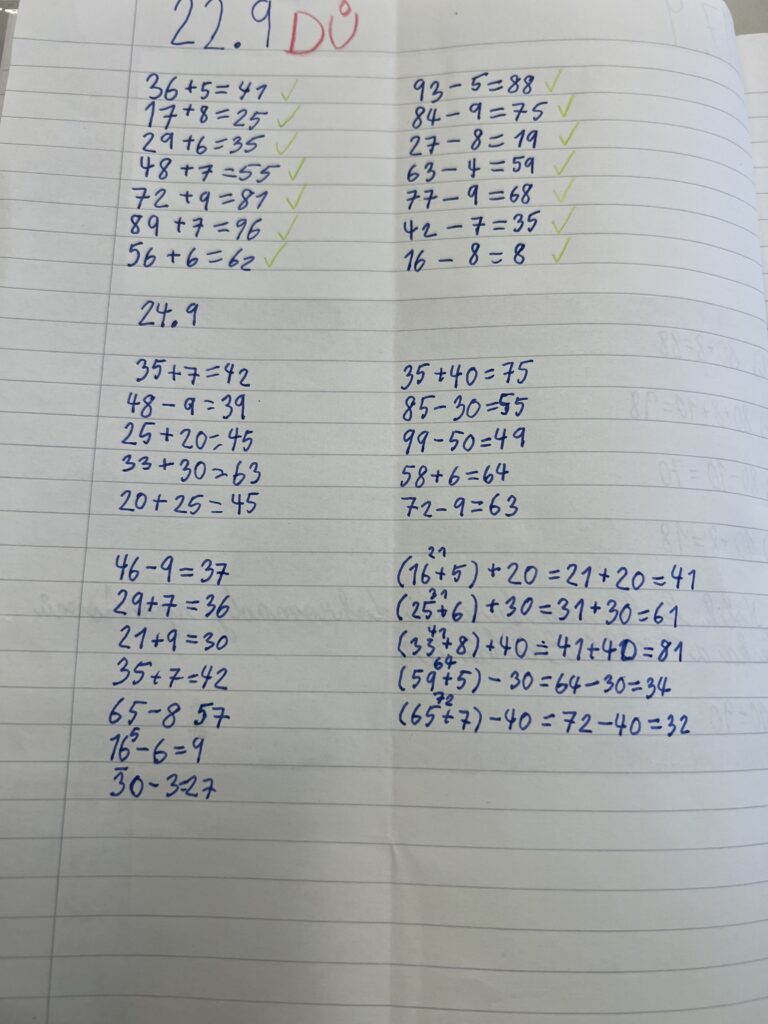 22.9 DŮ
36+5=41 ✓
17+8=25 ✓
29+6=35 ✓
48+7=55 ✓
72+9=81 ✓
89+7=96 ✓
56+6=62 ✓
93-5=88 ✓
84-9=75 ✓
27-8=19 ✓
63-4=59 ✓
77-9=68 ✓
42-7=35 ✓
16-8=8 ✓
24.9
35+7=42
48-9=39
25+20=45
33+30=63
20+25=45
35+40=75
85-30=55
99-50=49
58+6=64
72-9=63
46-9=37
29+7=36
21+9=30
35+7=42
65-8 57
16⁵-6=9
30-3=27
21
(16+5)+20=21+20=41
31
(25+6)+30=31+30=61
41
(33+8)+40=41+40=81
64
(59+5)-30=64-30=34
72
(65+7)-40=72-40=32